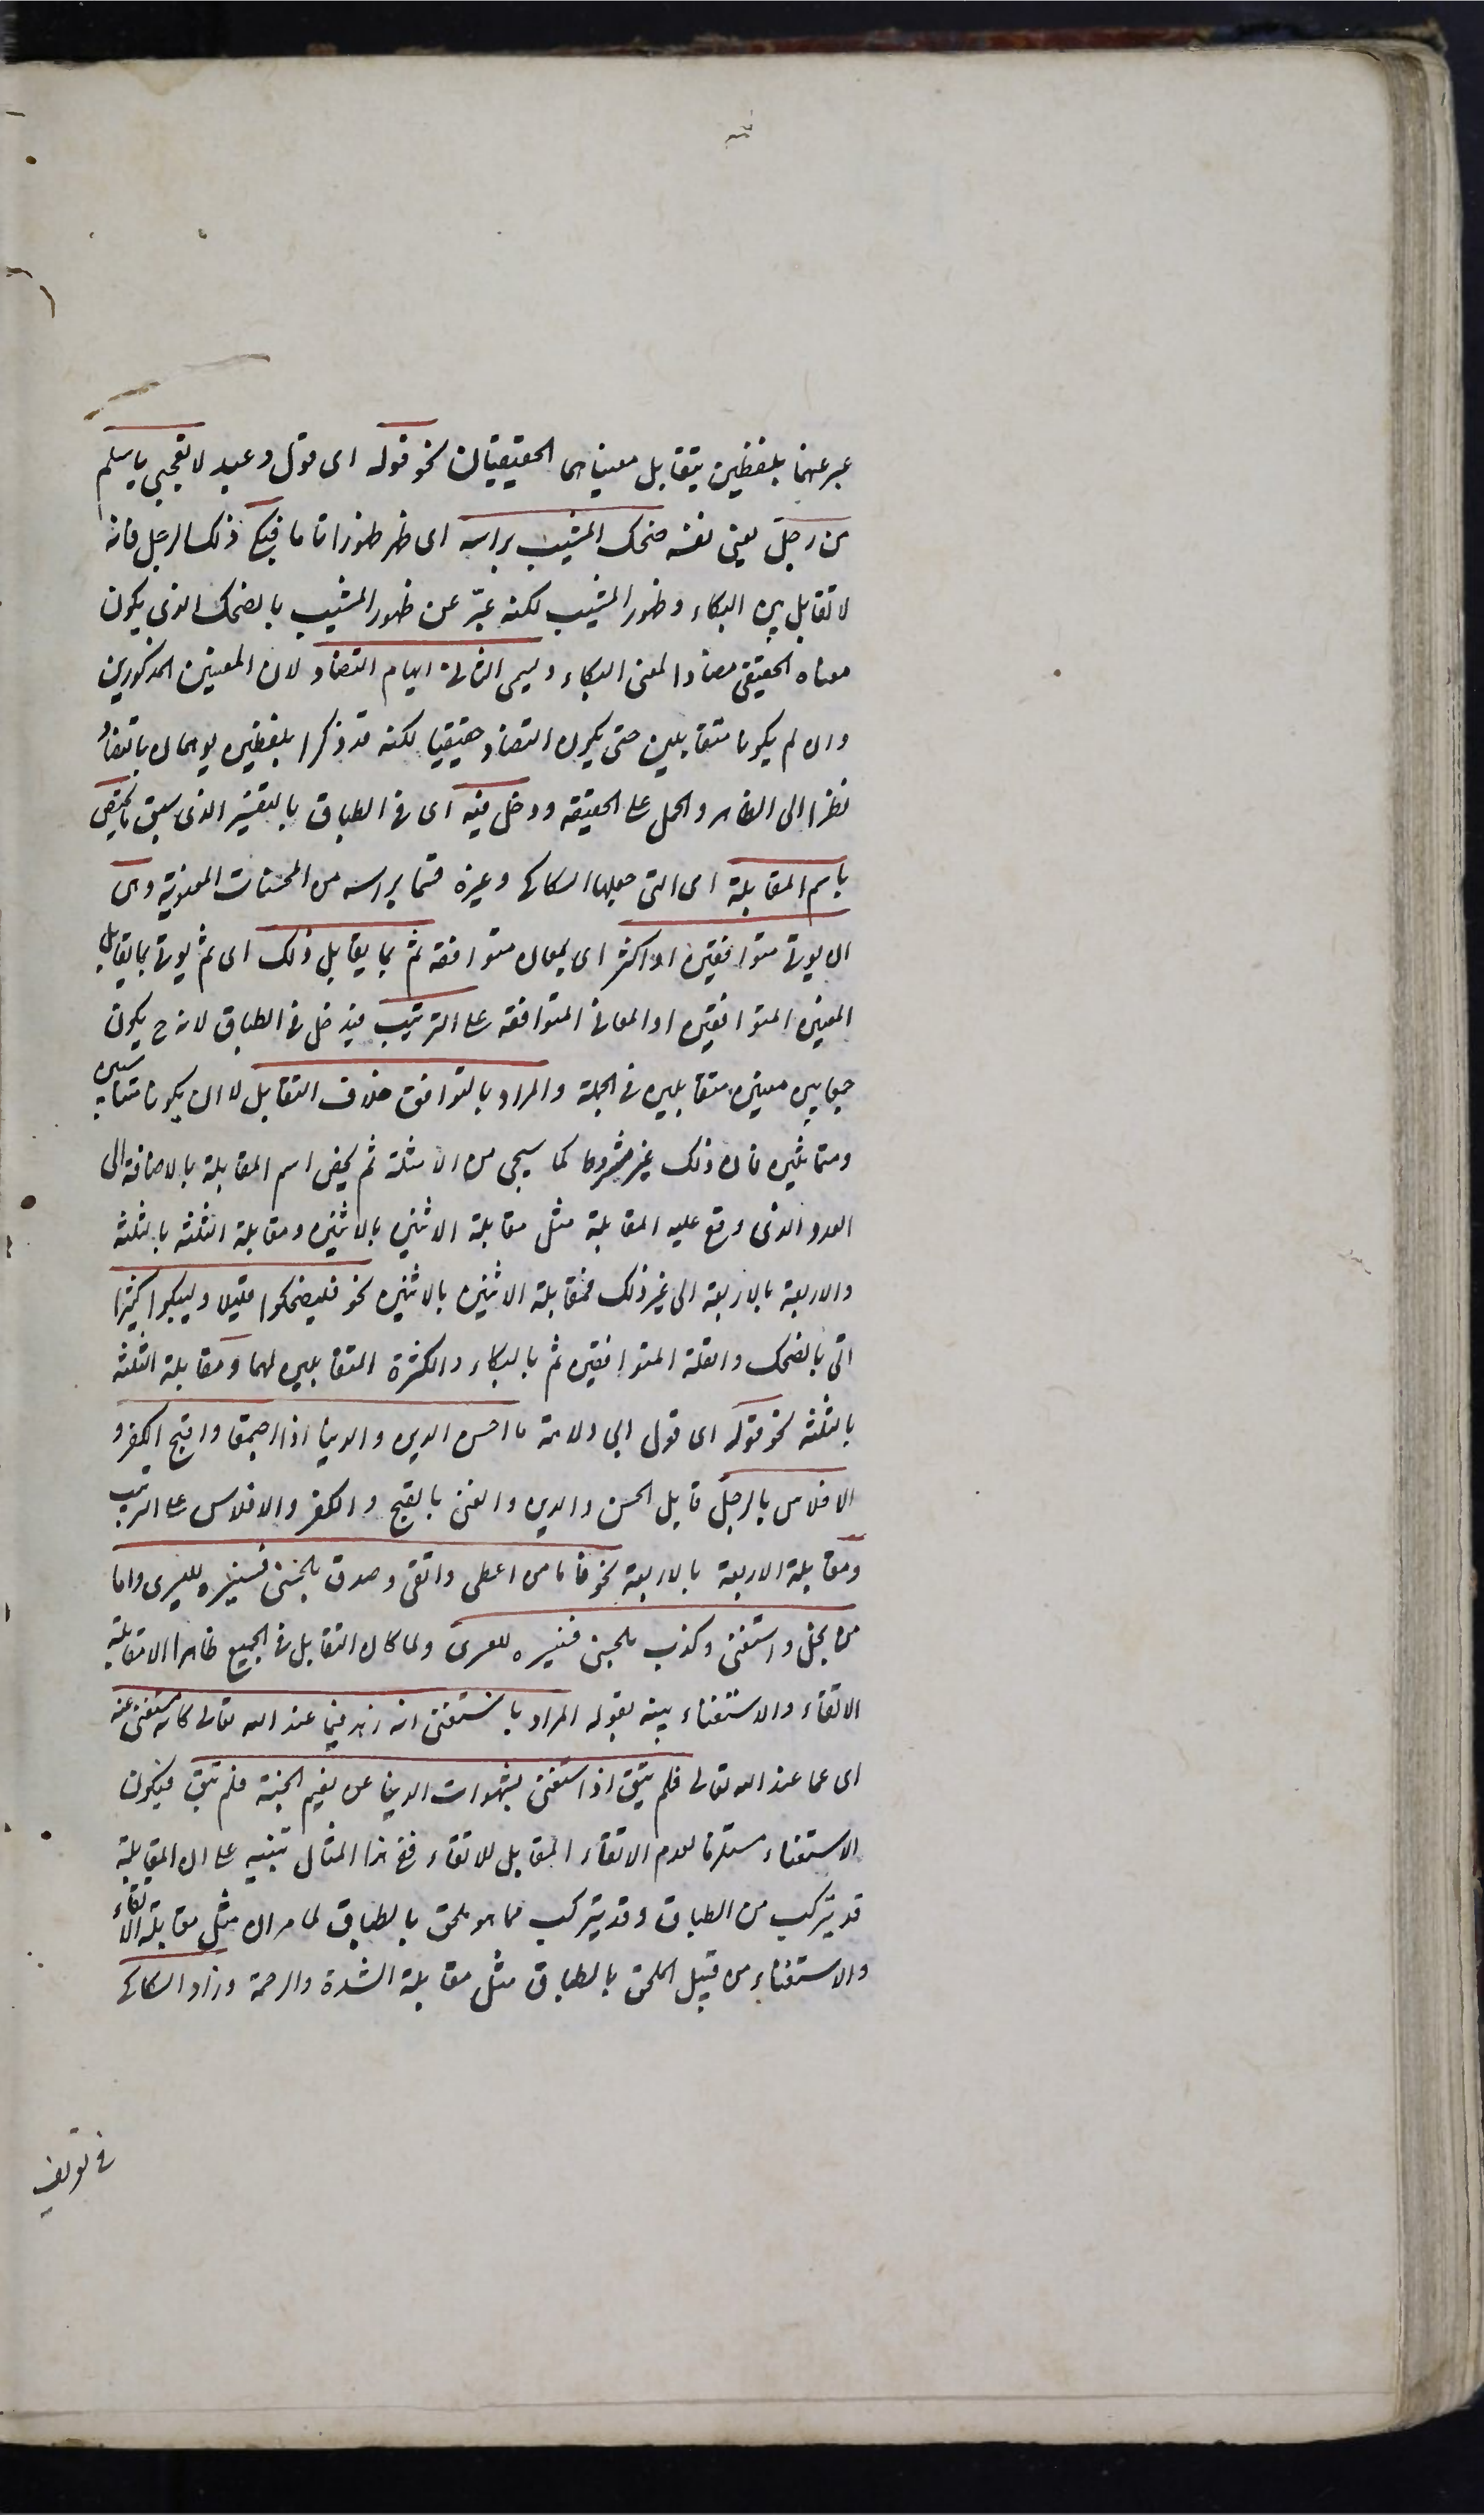 عبر عنهما بلفظين يتقابل معنياهما الحقيقيان نحو قوله اى قول دعبل لا تعجبي يا سلم
من رجل يعنى نفسه ضحك المشيب برأسه اى ظهر ظهورا تاما فبكى ذلك الرجل فانه
لا تقابل بين البكاء وظهور المشيب لكنه عبّر عن ظهور المشيب بالضحك الذى يكون
معناه الحقيقى مضادا لمعنى البكاء ويسمى الثانى ايهام التضاد لان المعنيين المذكورين
وان لم يكونا متقابلين حتى يكون التضاد حقيقيا لكنه قد ذكرا بلفظين يوهمان بالتضاد
نظرا الى الظاهر والحمل على الحقيقة ودخل فيه اى فى الطباق بالتفسير الذى سبق ما يختص
باسم المقابلة اى التى جعلها السكاكى وغيره قسما برأسه من المحسنات المعنوية وهى
ان يوتى متوافقين او اكثر اى بمعان متوافقة ثم بما يقابل ذلك اى ثم يوتى بما يقابل
المعنيين المتوافقين او المعانى المتوافقة على الترتيب فيدخل فى الطباق لانه ح يكون
جمعا بين معنيين متقابلين فى الجملة والمراد بالتوافق خلاف التقابل لا ان يكونا متناسبين
ومتماثلين فان ذلك غير مشروط كما سيجى من الامثلة ثم يخص اسم المقابلة بالاضافة الى
العدد الذى وقع عليه المقابلة مثل مقابلة الاثنين بالاثنين ومقابلة الثلثة بالثلثة
والاربعة بالاربعة الى غير ذلك فمقابلة الاثنين بالاثنين نحو فليضحكوا قليلا وليبكوا كثيرا
اتى بالضحك والقلة المتوافقين ثم بالبكاء والكثرة المتقابلين لهما ومقابلة الثلثة
بالثلثة نحو قوله اى قول ابى دلامة ما احسن الدين والدنيا اذا اجتمعا واقبح الكفر و
الافلاس بالرجل قابل الحسن والدين والغنى بالقبح والكفر والافلاس على الترتيب
ومقابلة الاربعة بالاربعة نحو فاما من اعطى واتقى وصدق بالحسنى فسنيسره لليسرى واما
من بخل واستغنى وكذب بالحسنى فسنيسره للعسرى ولما كان التقابل فى الجميع ظاهرا الا مقابلة
الاتقاء والاستغناء بينه بقوله المراد باستغنى انه زهد فيما عند الله تعالى كانه مستغنى عنه
اى عما عند الله تعالى فلم يتق اذ استغنى بشهوات الدنيا عن نعيم الجنة فلم يتق فيكون
الاستغناء مستلزما لعدم الاتقاء المقابل للاتقاء ففى هذا المثال تنبيه على ان المقابلة
قد يتركب من الطباق وقد يتركب مما هو ملحق بالطباق لما مر ان مثل مقابلة الاتقاء
والاستغناء من قبيل الملحق بالطباق مثل مقابلة الشدة والرحمة وزاد السكاكى
فى تعريف